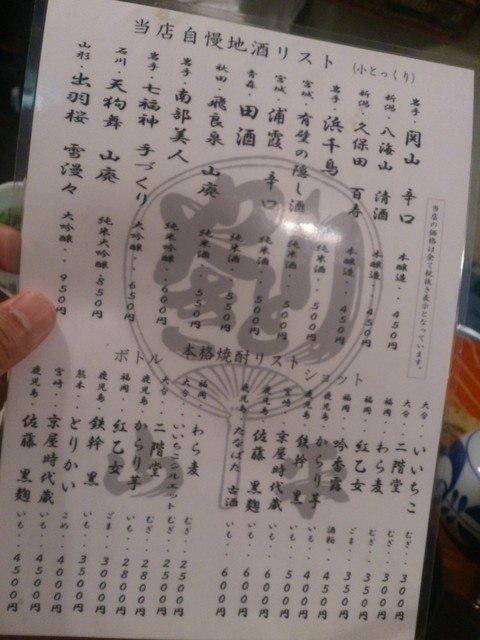 当店自慢地酒リスト (小とっくり)
当店の価格は全て税抜き表示となっています。
岩手・関山 辛口 本醸造・・450円
新潟・八海山 清酒 本醸造・・450円
新潟・久保田 百寿 本醸造・・450円
岩手・浜千鳥 純米酒・・500円
宮城・有壁の隠し酒 純米酒・・500円
宮城・浦霞 辛口 純米酒・・500円
青森・田酒 純米酒・・550円
秋田・飛良泉 山廃 純米酒・・550円
岩手・南部美人 純米吟醸・・600円
岩手・七福神 手づくり 大吟醸・・650円
石川・天狗舞 山廃 純米大吟醸・・850円
山形・出羽桜 雪漫々 大吟醸・・950円
やきとり
山平
本格焼酎リスト
ショット
大分・いいちこ むぎ・・300円
大分・二階堂 むぎ・・300円
福岡・わら麦 むぎ・・300円
福岡・紅乙女 ごま・・350円
福岡・吟香露 酒粕・・350円
鹿児島・からり芋 いも・・450円
鹿児島・鉄幹 黒 いも・・400円
宮崎・京屋時代蔵 いも・・500円
鹿児島・佐藤 黒麹 いも・・600円
鹿児島・たなばた 古酒 いも・・600円
ボトル
福岡・わら麦 むぎ・・2500円
大分・いいちこシルエット むぎ・・2500円
大分・二階堂 むぎ・・2800円
鹿児島・からり芋 いも・・2800円
福岡・紅乙女 ごま・・3000円
鹿児島・鉄幹 黒 いも・・3500円
熊本・とりかい こめ・・4000円
宮崎・京屋時代蔵 いも・・4500円
鹿児島・佐藤 黒麹 いも・・4500円